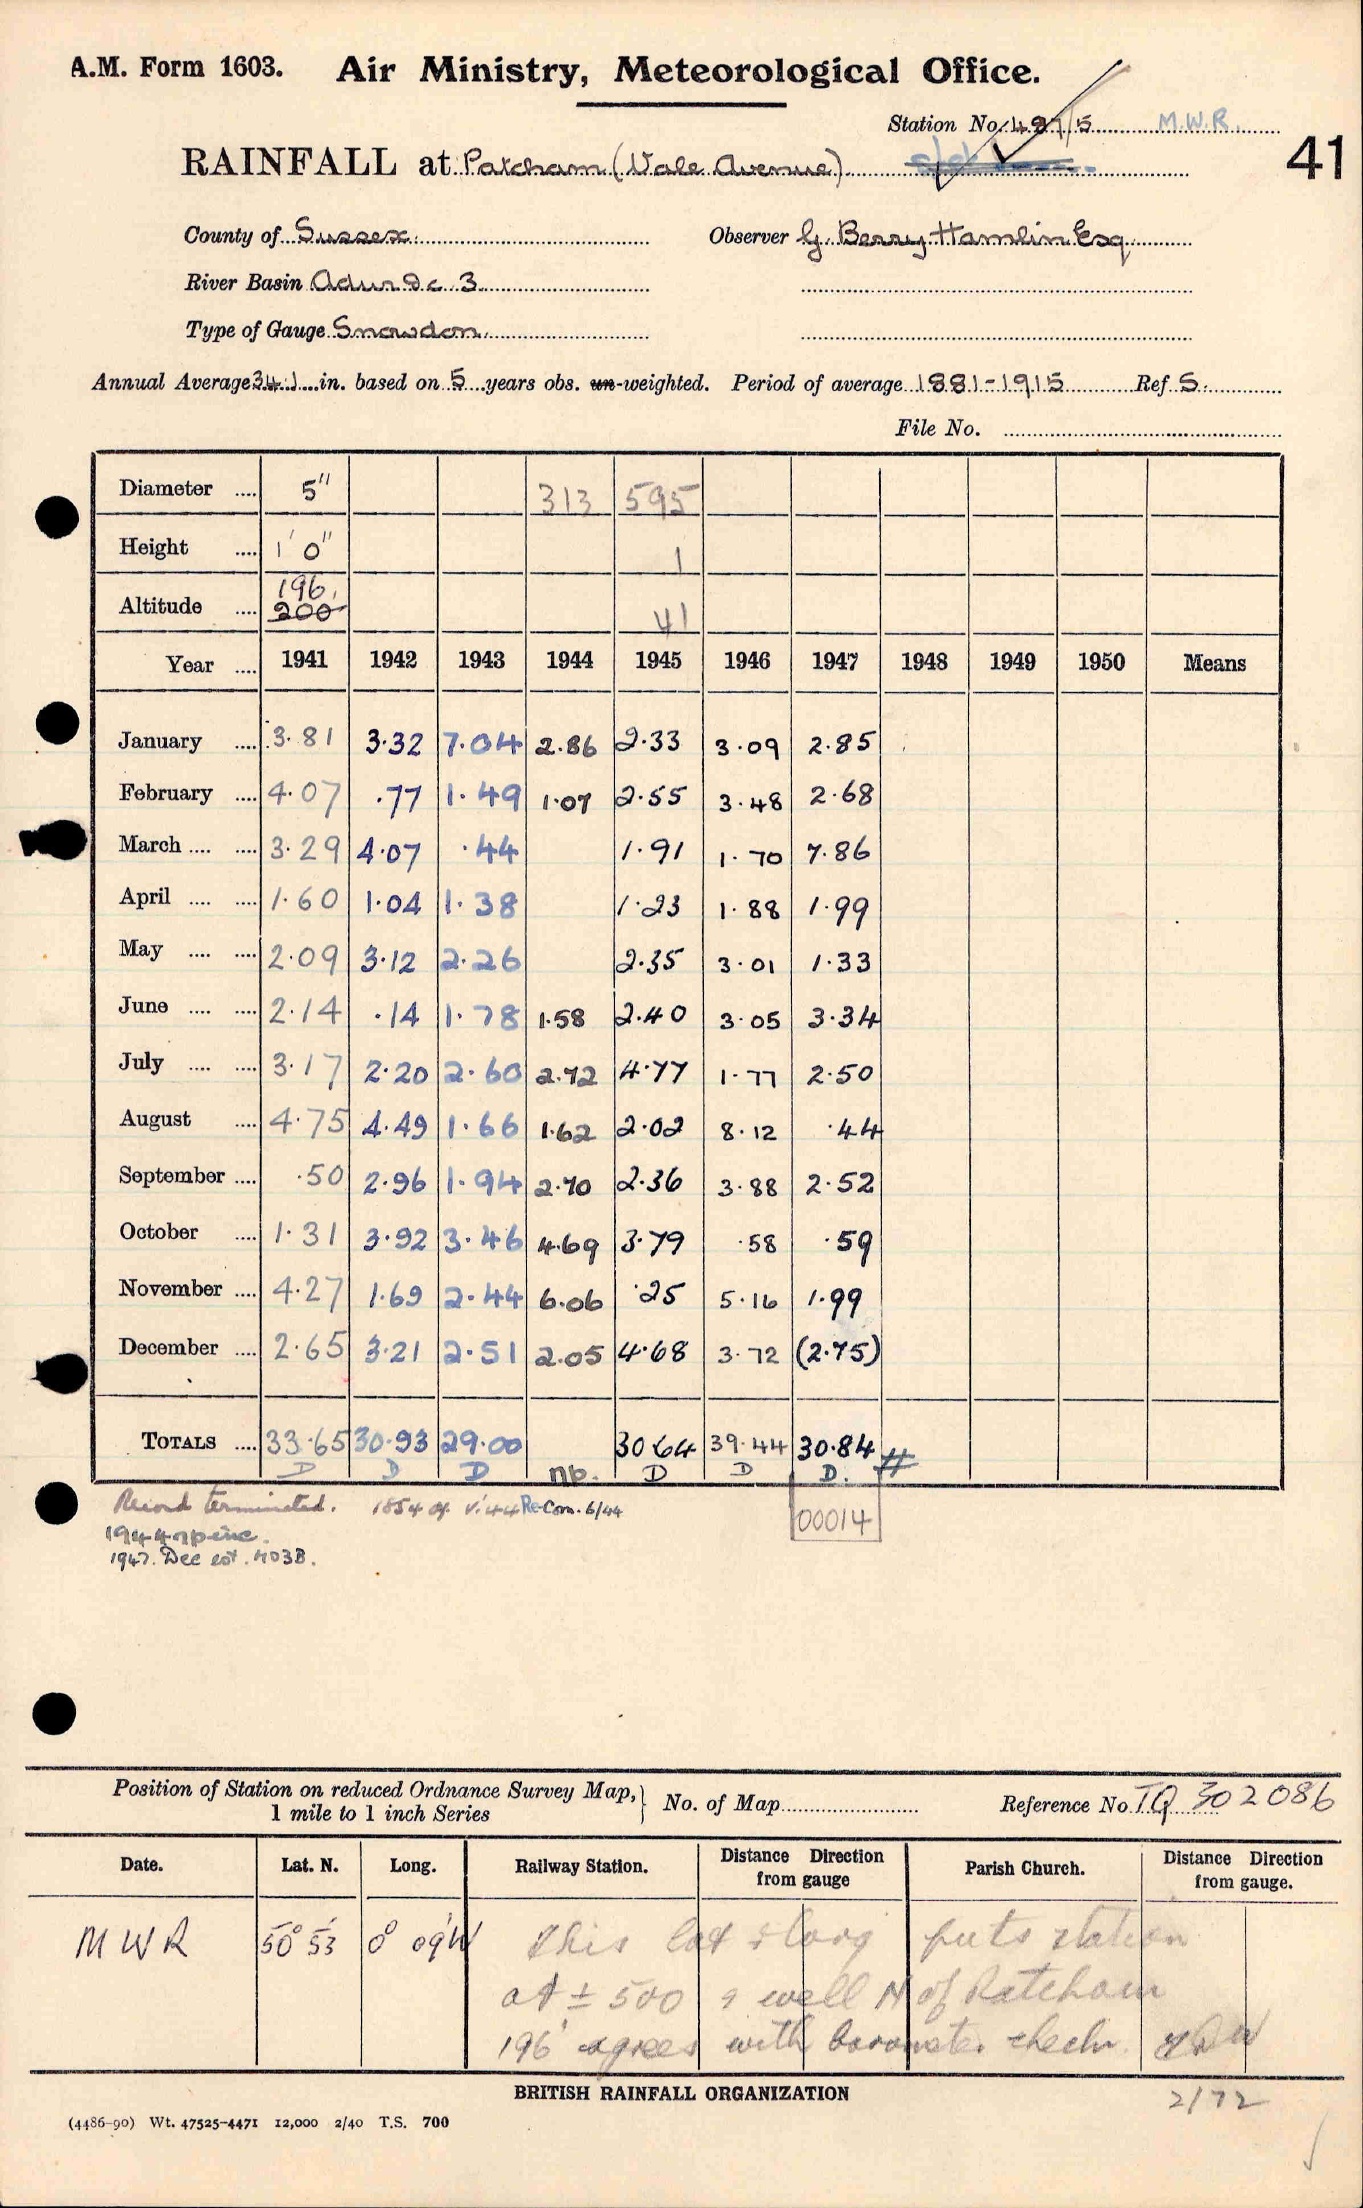 A.M. Form 1603. Air Ministry, Meteorological Office.
Station No. 487/5 M.W.R.
41
RAINFALL at Patcham (Vale Avenue)
County of Sussex. Observer G. Berry Hamlin Esq
River Basin Adur &c 3
Type of Gauge Snowdon.
Annual Average 34.1 in. based on 5 years obs. un-weighted. Period of average 1881-1915 Ref S.
File No.
Diameter .... 5" 313 595
Height .... 1' 0" 1
196
Altitude .... 200 41
Year .... 1941 1942 1943 1944 1945 1946 1947 1948 1949 1950 Means
January .... 3.81 3.32 7.04 2.86 2.33 3.09 2.85
February .... 4.07 .77 1.49 1.07 2.55 3.48 2.68
March .... .... 3.29 4.07 .44 1.91 1.70 7.86
April .... .... 1.60 1.04 1.38 1.23 1.88 1.99
May .... .... 2.09 3.12 2.26 2.35 3.01 1.33
June .... .... 2.14 .14 1.78 1.58 2.40 3.05 3.34
July .... .... 3.17 2.20 2.60 2.72 4.77 1.77 2.50
August .... 4.75 4.49 1.66 1.62 2.02 8.12 .44
September .... .50 2.96 1.94 2.70 2.36 3.88 2.52
October .... 1.31 3.92 3.46 4.69 3.79 .58 .59
November .... 4.27 1.69 2.44 6.06 .25 5.16 1.99
December .... 2.65 3.21 2.51 2.05 4.68 3.72 (2.75)
TOTALS .... 33.65 30.93 29.00 30.64 39.44 30.84 #
D D D np. D D D.
Record terminated. 1854 of v. 44 Re-Com. 6/44
00014
1944 np inc.
1947. Dec est. 403B.
Position of Station on reduced Ordnance Survey Map,
1 mile to 1 inch Series
No. of Map Reference No TQ 302086
Date. Lat. N. Long. Railway Station. Distance Direction from gauge Parish Church. Distance Direction from gauge.
M W R 50° 53' 0° 09'W This lat & long puts station
at ± 500 & well N of Patcham
196' agrees with barometer check.
BRITISH RAINFALL ORGANIZATION
2/72
(4486-90) Wt. 47525-4471 12,000 2/40 T.S. 700